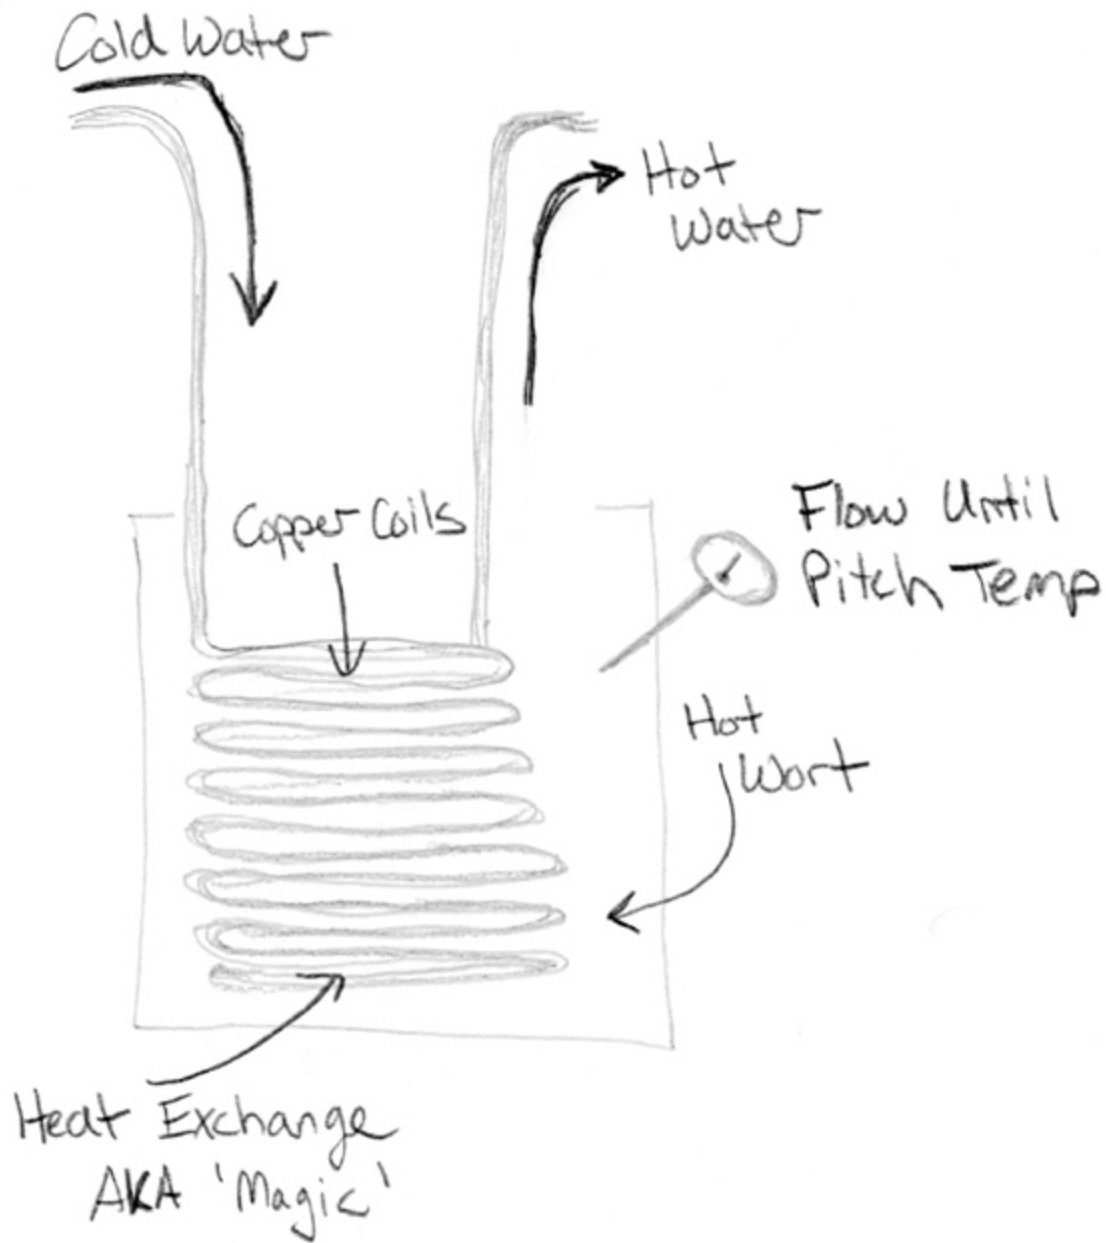 Cold Water
Hot
Water
Copper Coils
Flow Until
Pitch Temp
Hot
Wort
Heat Exchange
AKA 'Magic'